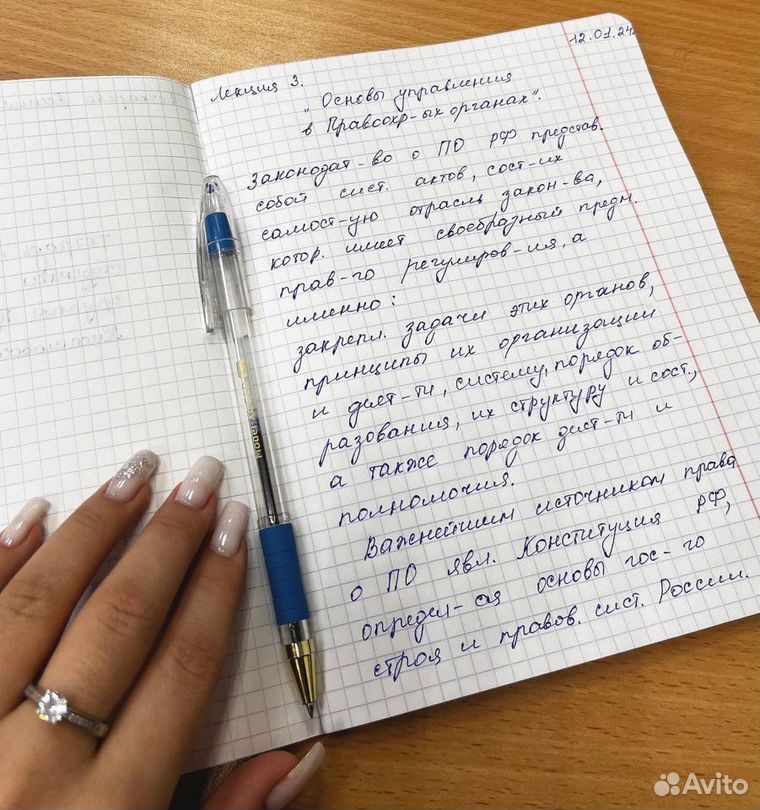 12.01.24.
Лекция 3.
"Основы управления
в Правоохр-ых органах".
Законодат-во о ПО РФ представ.
собой сист. актов, сост-их
самост-ую отрасль закон-ва,
котор. имеет своебразный предм.
прав-го регулиров-ия, а
именно:
закрепл. задачи этих органов,
принципы их организации
и деят-ти, систему, порядок об-
разования, их структуру и сост.,
а также порядок деят-ти и
полномочия.
Важнейшим источником права
о ПО явл. Конституция РФ,
определ-ая основы гос-го
строя и правов. сист. России.
Avito